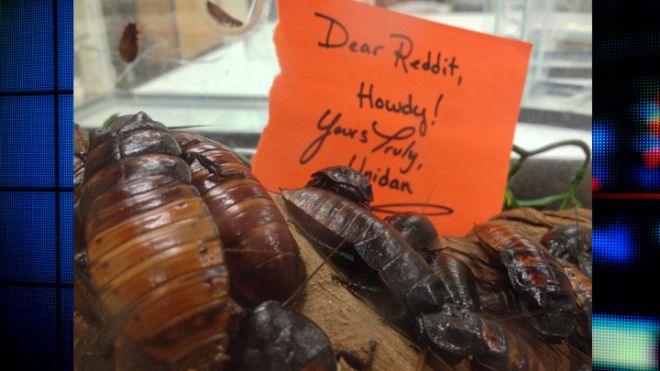 Dear Reddit,
Howdy!
Yours Truly,
Unidan